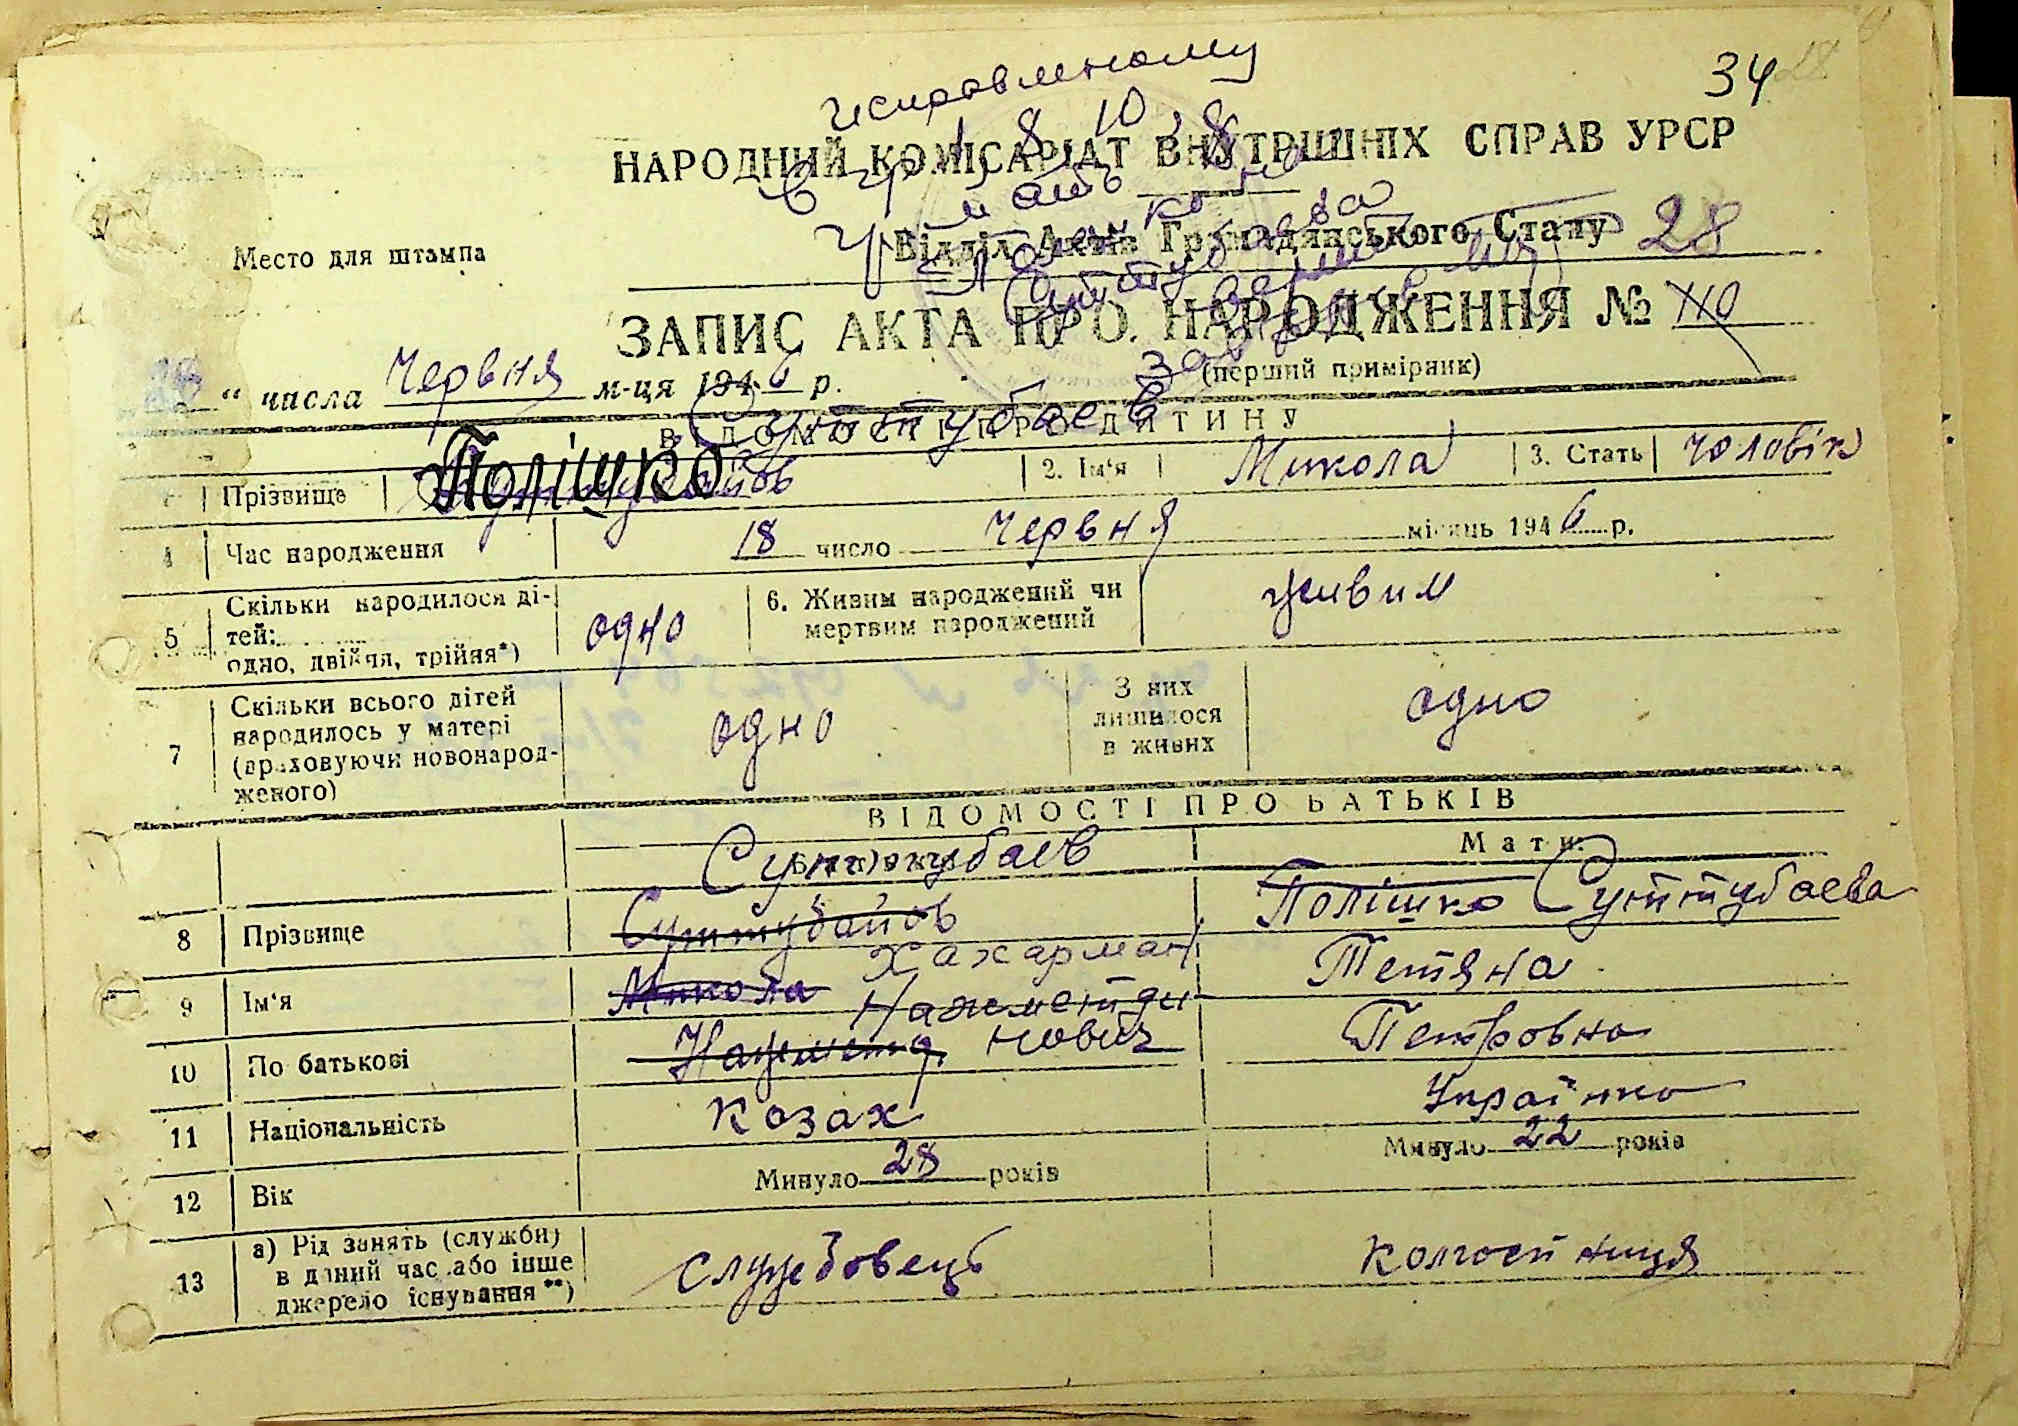 34 28
исправленному
НАРОДНИЙ КОМІСАРІАТ ВНУТРІШНІХ СПРАВ УРСР
в гр. 1, 8, 10, 8
мать
Відділ Актів Громадянського Стану 28
Место для штампа
Суттубаева
верить
ЗАПИС АКТА ПРО НАРОДЖЕННЯ № 110
(перший примірник)
28 “ числа Червня м-ця 1946 р.
Суттубаев
ВІДОМОСТІ ПРО ДИТИНУ
Прізвище Полішко 2. Ім‘я Микола 3. Стать чоловік
4 Час народження 18 число Червня місяць 1946 р.
5 Скільки народилося ді-
тей:
одно, двійня, трійня*) одно 6. Живим народжений чи
мертвим народжений живим
7 Скільки всього дітей
народилось у матері
(враховуючи новонарод-
женого) одно З них
лишилося
в живих одно
ВІДОМОСТІ ПРО БАТЬКІВ
Суттубаев Мати
8 Прізвище Суттубайов Полішко Суттубаева
Хахарман
9 Ім‘я Микола Тетяна
Нажметди
10 По батькові Нажметд. нович Петровна
11 Національність Козах Українка
12 Вік Минуло 28 років Минуло 22 років
13 а) Рід занять (служби)
в даний час або інше
джерело існування **) службовець колгоспниця